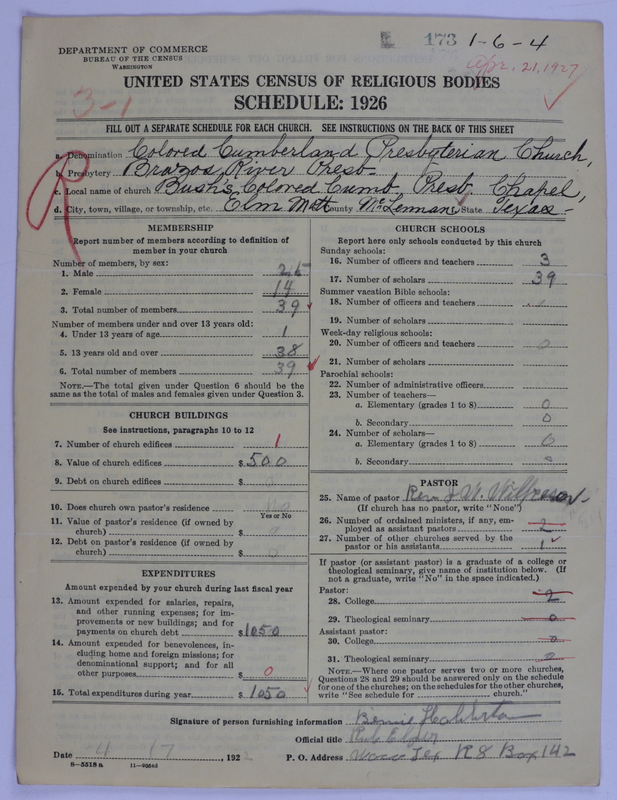 173 1-6-4
DEPARTMENT OF COMMERCE
BUREAU OF THE CENSUS
WASHINGTON
Apr. 21, 1927
UNITED STATES CENSUS OF RELIGIOUS BODIES
3-1
SCHEDULE: 1926
FILL OUT A SEPARATE SCHEDULE FOR EACH CHURCH. SEE INSTRUCTIONS ON THE BACK OF THIS SHEET
R
a. Denomination Colored Cumberland Presbyterian Church,
b. Presbytery Brazos River Presb.
c. Local name of church Bush's Colored Cumb. Presb. Chapel,
d. City, town, village, or township, etc. Elm Mott County McLennan State Texas
MEMBERSHIP
Report number of members according to definition of
member in your church
Number of members, by sex:
1. Male 25
2. Female 14
3. Total number of members 39
Number of members under and over 13 years old:
4. Under 13 years of age 1
5. 13 years old and over 38
6. Total number of members 39
NOTE.—The total given under Question 6 should be
same as the total of males and females given under Question 3.
CHURCH BUILDINGS
See instructions, paragraphs 10 to 12
7. Number of church edifices 1
8. Value of church edifices $ 500
9. Debt on church edifices $
10. Does church own pastor's residence No
Yes or No
11. Value of pastor's residence (if owned by
church) $
12. Debt on pastor's residence (if owned by
church) $ 0
EXPENDITURES
Amount expended by your church during last fiscal year
13. Amount expended for salaries, repairs,
and other running expenses; for im-
provements or new buildings; and for
payments on church debt $ 1050
14. Amount expended for benevolences, in-
cluding home and foreign missions; for
denominational support; and for all
other purposes $ 0
15. Total expenditures during year $ 1050
CHURCH SCHOOLS
Report here only schools conducted by this church
Sunday schools:
16. Number of officers and teachers 3
17. Number of scholars 39
Summer vacation Bible schools:
18. Number of officers and teachers
19. Number of scholars
Week-day religious schools:
20. Number of officers and teachers 0
21. Number of scholars
Parochial schools:
22. Number of administrative officers
23. Number of teachers—
a. Elementary (grades 1 to 8) 0
b. Secondary 0
24. Number of scholars—
a. Elementary (grades 1 to 8) 0
b. Secondary 0
PASTOR
25. Name of pastor Rev. J. W.
(If church has no pastor, write "None")
26. Number of ordained ministers, if any, em-
ployed as assistant pastors 2
27. Number of other churches served by the
pastor or his assistants 1
If pastor (or assistant pastor) is a graduate of a college or
theological seminary, give name of institution below. (If
not a graduate, write "No" in the space indicated.)
Pastor:
28. College 2
29. Theological seminary 0
Assistant pastor:
30. College 0
31. Theological seminary
NOTE.—Where one pastor serves two or more churches,
Questions 28 and 29 should be answered only on the schedule
for one of the churches; on the schedules for the other churches,
write "See schedule for church."
Signature of person furnishing information
Official title
Date 4 17, 192 P. O. Address Waco Tex R8 Box 142
8-5518a